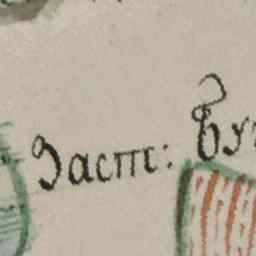 Заст: Бу